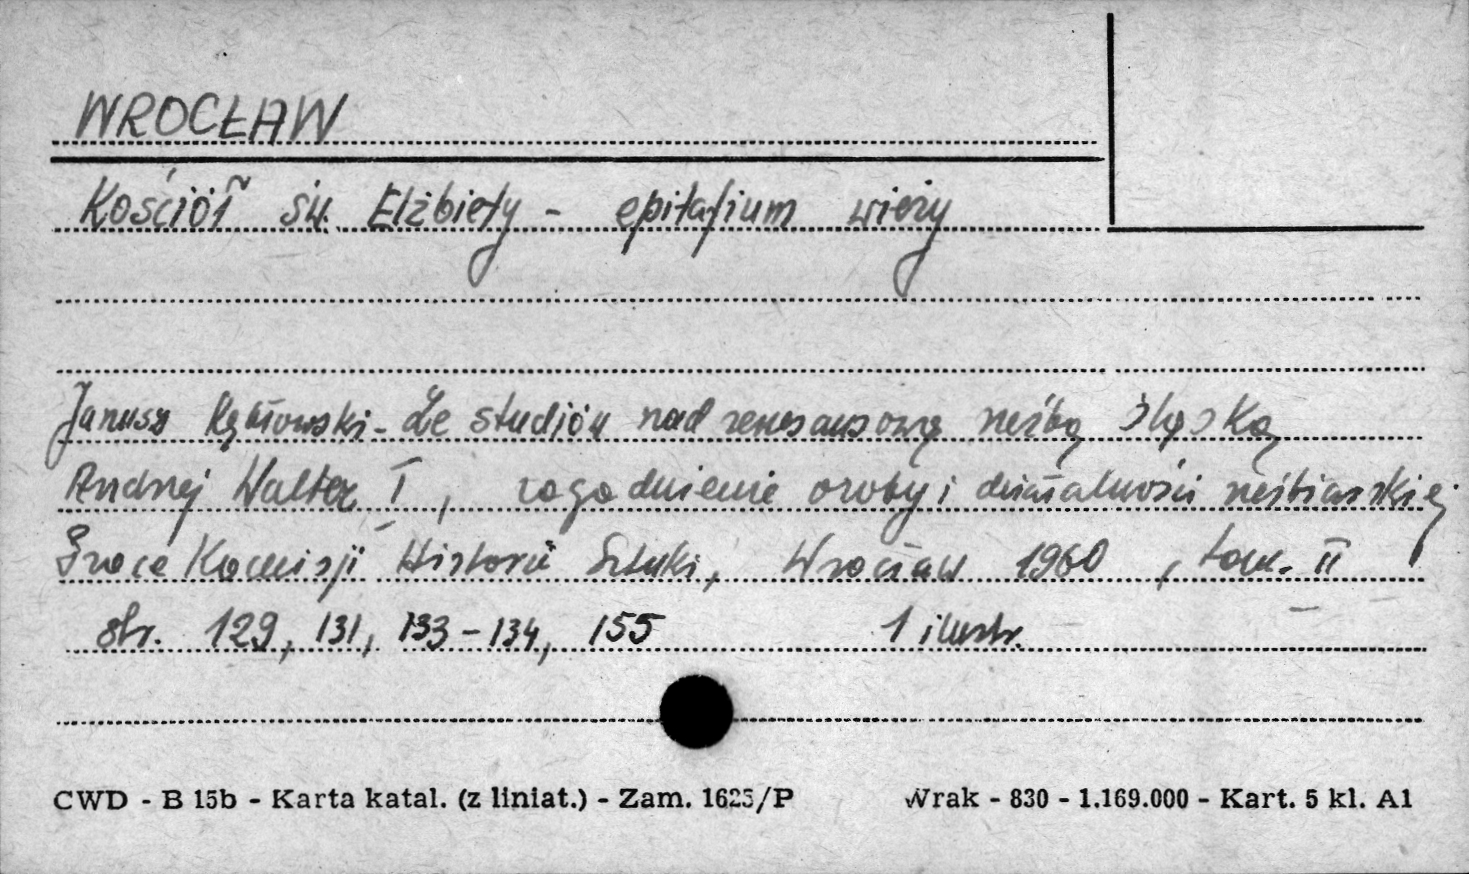 WROCŁAW
Kościół św. Elżbiety - epitafium wieży
Janusz Kębłowski - Ze studiów nad renesansową rzeźbą śląską
Andrzej Walter I, zagadnienie osoby i działalności rzeźbiarskiej
Prace Komisji Historii Sztuki, Wrocław 1960, tom. II
str. 129, 131, 133-134, 155 1 ilustr.
CWD - B 15b - Karta katal. (z liniat.) - Zam. 1625/P Wrak - 830 - 1.169.000 - Kart. 5 kl. A1